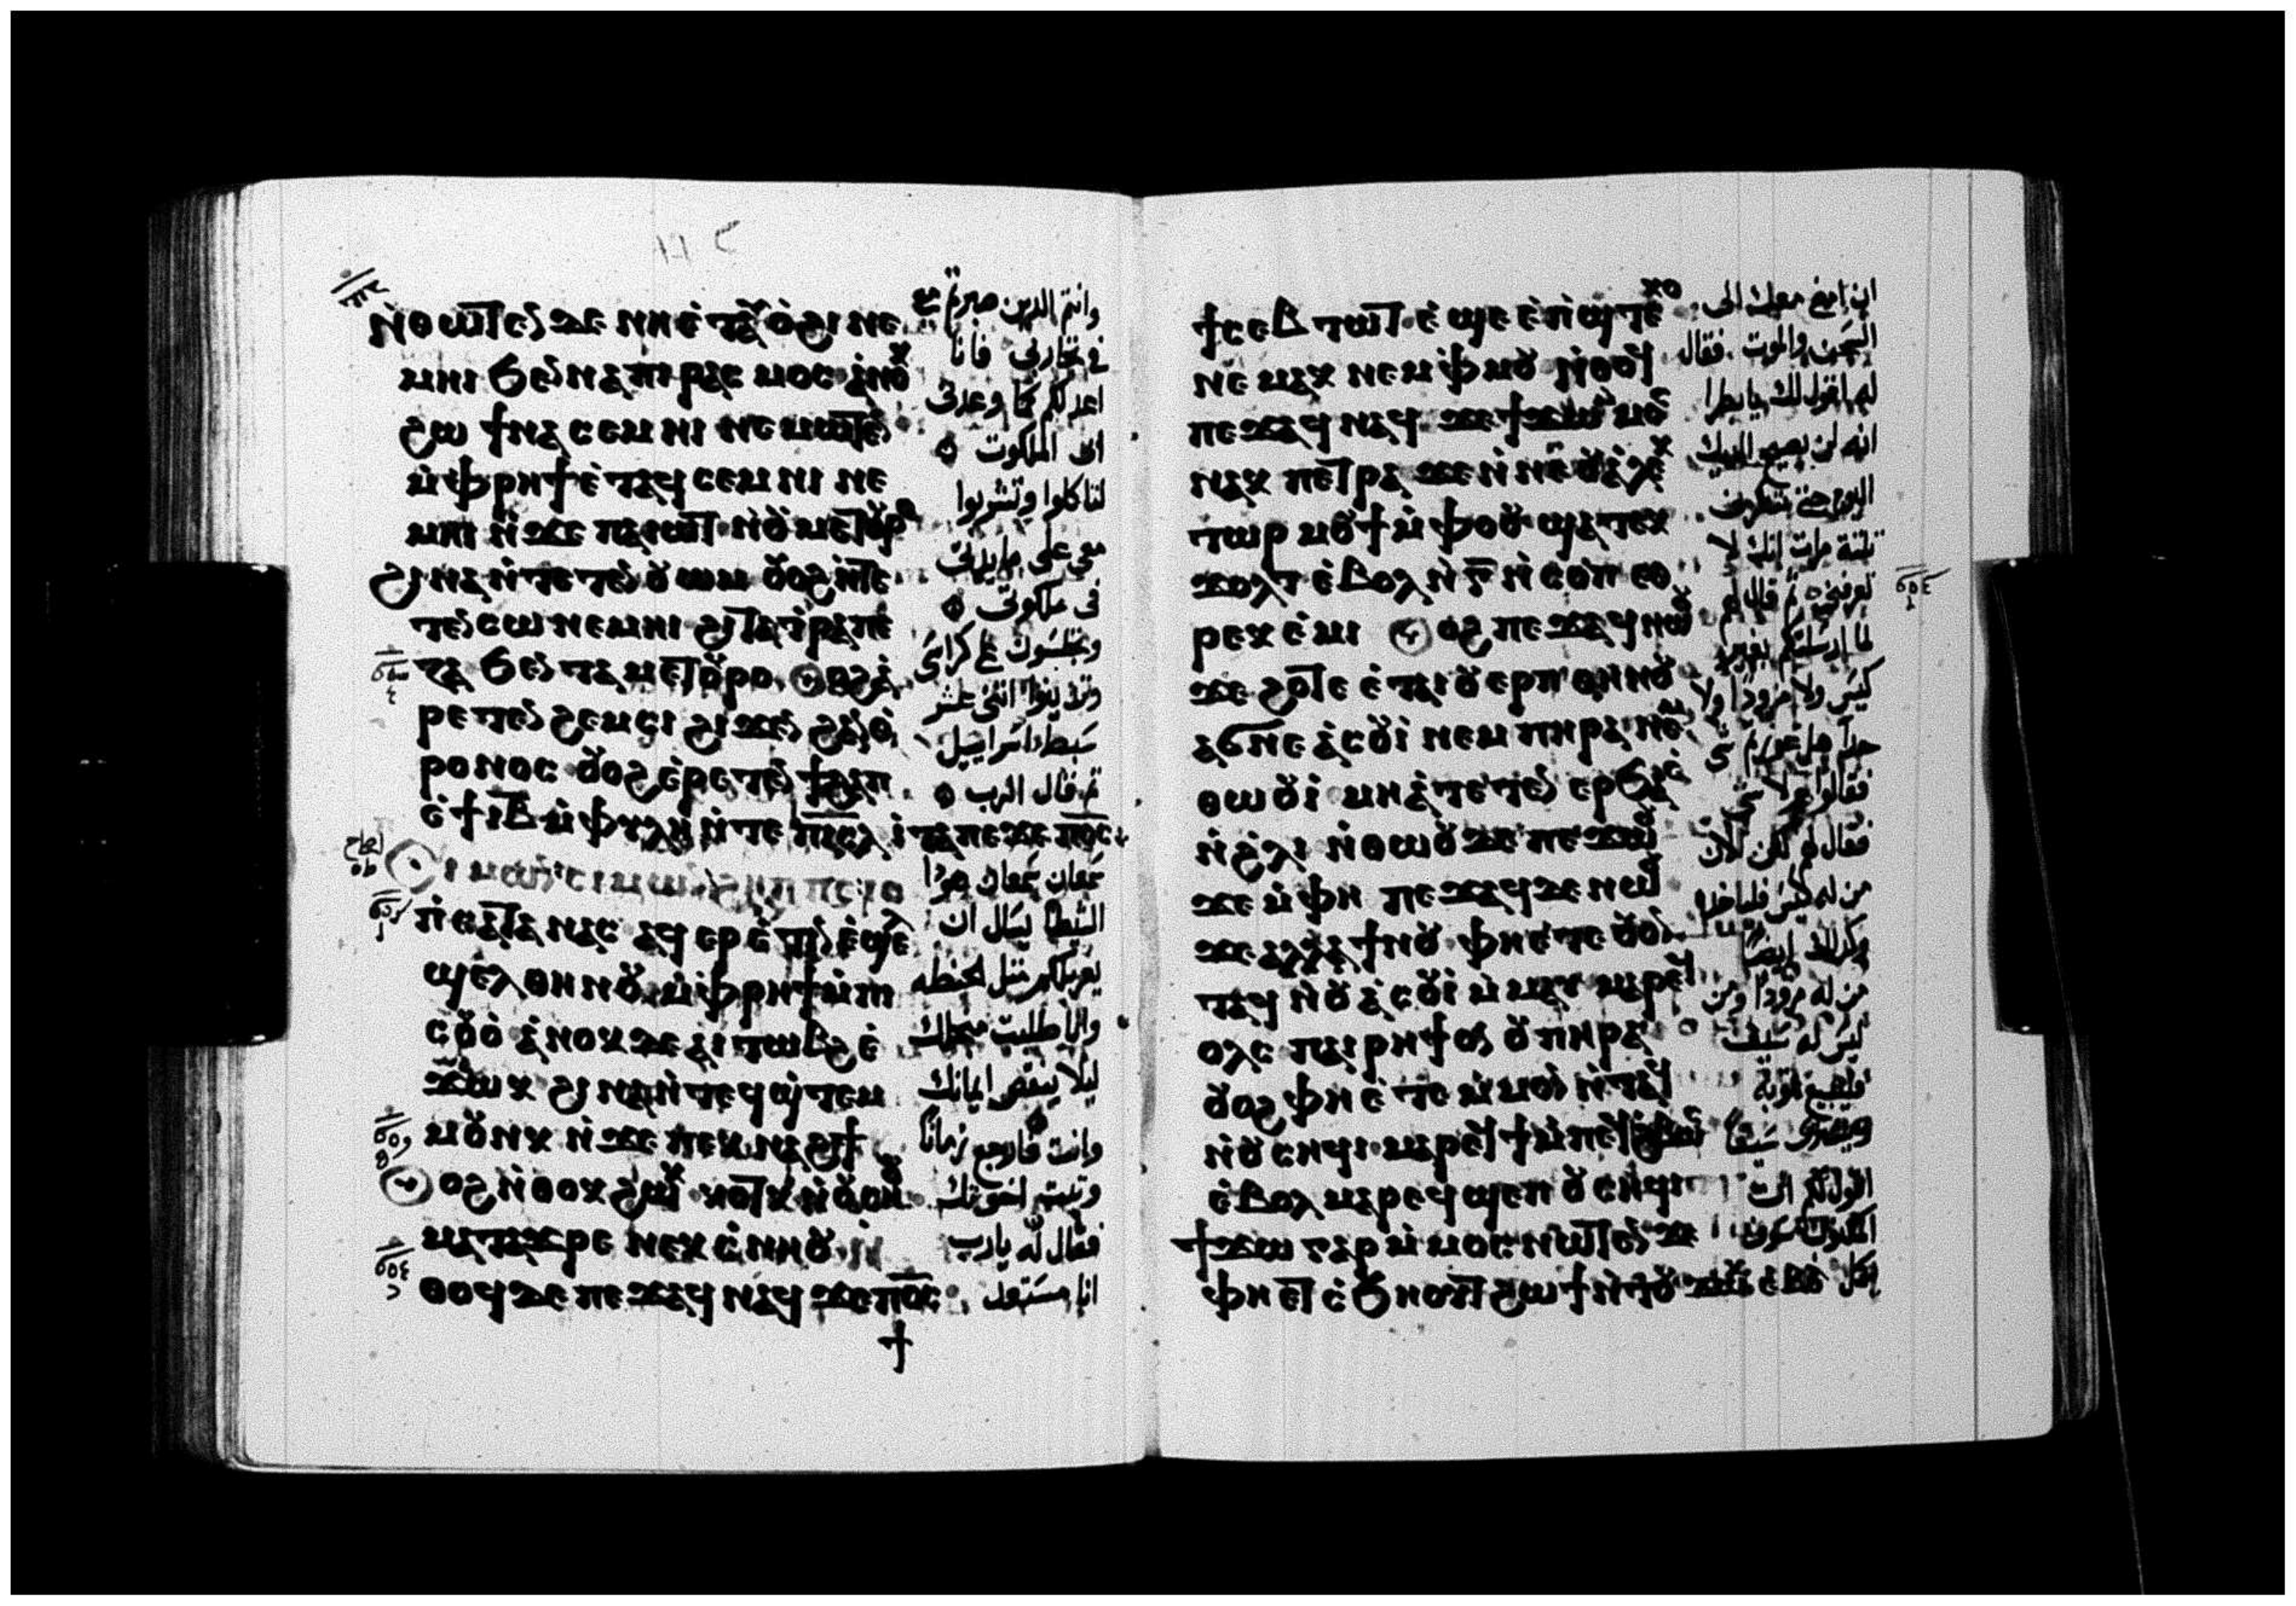 ⲛ̀ⲑⲱⲧⲉⲛ ⲇⲉ ⲛⲏ ⲉ̀ⲧⲁⲩⲟ̀ϩⲓ ⲛⲉ
ⲙⲏⲓ ϧⲉⲛ ⲛⲁⲡⲓⲣⲁⲥⲙⲟⲥ ⲁ̀ⲛⲟⲕ
ϩⲱ ϯⲛⲁⲥⲉⲙⲛⲓ ⲛⲉⲙⲱⲧⲉⲛ
ⲙ̀ⲫⲣⲏϯ ⲉ̀ⲧⲁϥⲥⲉⲙⲛⲓ ⲛⲉ
ⲙⲏⲓ ⲛ̀ϫⲉ ⲡⲁⲓⲱⲧ ⲛ̀ⲟⲩⲙⲉⲧⲟⲩⲣⲟ
ϩⲓⲛⲁ ⲛ̀ⲧⲉⲧⲉⲛⲟⲩⲱⲙ ⲟⲩⲟϩ ⲛ̀ⲧⲉ
ⲧⲉⲛⲥⲱ ⲛⲉⲙⲏⲓ ϩⲓ ⲧⲁⲧⲣⲁⲡⲉ
ⲍⲁ ϧⲉⲛ ⲧⲁⲙⲉⲧⲟⲩⲣⲟ ⲟⲩⲟϩ ⲉ̀
ⲣⲉⲧⲉⲛϩⲉⲙⲥⲓ ϩⲓϫⲉⲛ ϩⲁⲛⲑ̀
ⲣⲟⲛⲟⲥ ⲟⲩⲟϩ ⲉ̀ⲣⲉⲧⲉⲛϯϩⲁⲡ
ⲉ̀ϯⲓⲃ ⲙ̀ⲫⲩⲗⲏ ⲛ̀ⲧⲉ ⲡⲓⲥⲗ ⲓⲧⲁ ⲡⲉϫⲉ ⲡⲟⲥ
ⲛ̀ⲥⲁⲧⲁⲛⲁⲥ ⲁϥⲉⲣⲉ̀ⲧⲓⲛ ⲉ̀ϣⲉ
ϣⲉⲗⲑⲏⲛⲟⲩ ⲙ̀ⲫⲣⲏϯ ⲙ̀ⲡⲓ
ⲥⲟⲩⲟ̀ ⲁ̀ⲛⲟⲕ ⲇⲉ ⲁⲓⲧⲱⲃϩ ⲉ̀
ϫⲱⲕ ϩⲓⲛⲁ ⲛ̀ⲧⲉϥϣ̀ⲧⲉⲙ
ⲙⲟⲩⲛⲕ ⲛ̀ϫⲉ ⲡⲉⲕⲛⲁϩϯ
ⲟⲩⲟϩ ⲛ̀ⲑⲟⲕ ϩⲱⲕ ⲕⲟⲧⲕ ⲛ̀ⲟⲩⲥⲏⲟⲩ
ⲙⲁⲧⲁϫⲣⲉ ⲛⲉⲕⲥ̀ⲛⲏⲟⲩ ⲛ̀
ⲑⲟϥ ⲇⲉ ⲡⲉϫⲁϥ ⲛⲁϥ ϫⲉ ⲡⲟⲥ
وانتم الدين صبرتم مع
في تجاربي فانا
اعد لكم كما وعدني
ابي الملكوت
لتاكلوا وتشربوا
معي على مايدتي
في ملكوتي
وتجلسون على كراسي
وتدينوا اثنى عشر
سبط اسراييل
ثم قال الرب
سمعان سمعان هودا
الشيطان يسال ان
يغربلكم مثل الحنطه
وانا طلبت عنك
ليلا ينقص ايمانك
وانت فارجع زمانا
وثبت اخوتك
فقال له يارب
انا مستعد
ϯⲥⲉⲃⲧⲱⲧ ⲉ̀ϣⲉ ⲉ̀ⲡ̀ϣⲧⲉⲕⲟ
ⲛⲉⲙⲁⲕ ⲛⲉⲙ ⲫ̀ⲙⲟⲩ ⲛ̀ⲑⲟϥ
ⲡⲉϫⲁϥ ⲛⲁϥ ϫⲉ ϯϫⲱ ⲙ̀ⲙⲟⲥ
ⲛⲁⲕ ⲡⲉⲧⲣⲁ ϫⲉ ⲛ̀ⲛⲉ ⲟⲩⲁ̀ⲗⲉⲕ
ⲧⲱⲣ ⲙⲟⲩϯ ⲙ̀ⲫⲟⲟⲩ ϣⲁⲧⲉⲕ
ϫⲟⲗⲧ ⲉ̀ⲃⲟⲗ ⲛ̀ⲅ̄ ⲛ̀ⲥⲟⲡ ⲉⲑ
ⲣⲉⲕⲉ̀ⲙⲓ ⲟⲩⲟϩ ⲡⲉϫⲁϥ ⲛⲱⲟⲩ
ϫⲉ ϩⲟⲧⲉ ⲉ̀ⲧⲁⲓⲟⲩⲉⲣⲡ ⲑⲏⲛⲟⲩ
ⲁϭⲛⲉ ⲁ̀ⲥⲟⲩⲓ̀ ⲛⲉⲙ ⲡⲏⲣⲁ ⲛⲉⲙ
ⲑⲱⲟⲩⲓ̀ ⲙⲏ ⲁ̀ⲧⲉⲧⲉⲛⲉⲣϧⲁⲉ̀
ⲛ̀ϩ̀ⲗⲓ ⲛ̀ⲑⲱⲟⲩ ⲇⲉ ⲡⲉϫⲱⲟⲩ
ϫⲉ ⲙ̀ⲫⲏ ⲡⲉϫⲁϥ ⲇⲉ ⲛⲱⲟⲩ
ϫⲉ ⲁⲗⲗⲁ ϯⲛⲟⲩ ⲫⲏ ⲉ̀ⲧⲉ ⲟⲩⲟⲛ
ⲧⲁϥ ⲛ̀ⲟⲩⲁ̀ⲥⲟⲩⲓ̀ ⲙ̀ⲙⲁⲩ ⲙⲁⲣⲉϥ
ⲟⲗⲥ ⲡⲁⲓⲣⲏϯ ⲟⲛ ⲟⲩⲡⲏⲣⲁ
ⲟⲩⲟϩ ⲫⲏ ⲉ̀ⲧⲉ ⲙ̀ⲙⲟⲛ ⲛ̀ⲧⲁϥ
ⲛ̀ⲟⲩⲥⲏϥⲓ ⲙⲁⲣⲉϥϯ ⲙ̀ⲡⲉϥϩⲃⲟⲥ
ⲉ̀ⲃⲟⲗ ⲙⲁⲣⲉϥϣⲉⲡ ⲟⲩⲥⲏϥⲓ
ϯϫⲱ ⲅⲁⲣ ⲙ̀ⲙⲟⲥ ⲛⲱⲧⲉⲛ ϫⲉ
ⲫⲏ ⲉⲧⲥ̀ϧⲏⲟⲩⲧ ϩⲱϯ ⲛ̀ⲧⲟⲩϫⲱⲕ ⲉ̀ⲃⲟⲗ
ان امضي معك الى
السجن والموت فقال
له اقول لك يا بطرا
انه لن يصيح الديك
اليوم حتى تنكرني
ثلثة مرات انك لا
تعرفني ثم قال لهم
لما ارسلتكم بغير
كيس ولا مزود ولا
حدآ هل عوزتم شي
فقالوا ولا شي
فقال لهم لكن الان
من له كيس فلياخذ
وكذلك ايضا
من له مزودا ومن
ليس له سيف
فليبيع ثوبه
ويشتري سيفا
اقول لكم ان
المكتوب سوف
يكمل